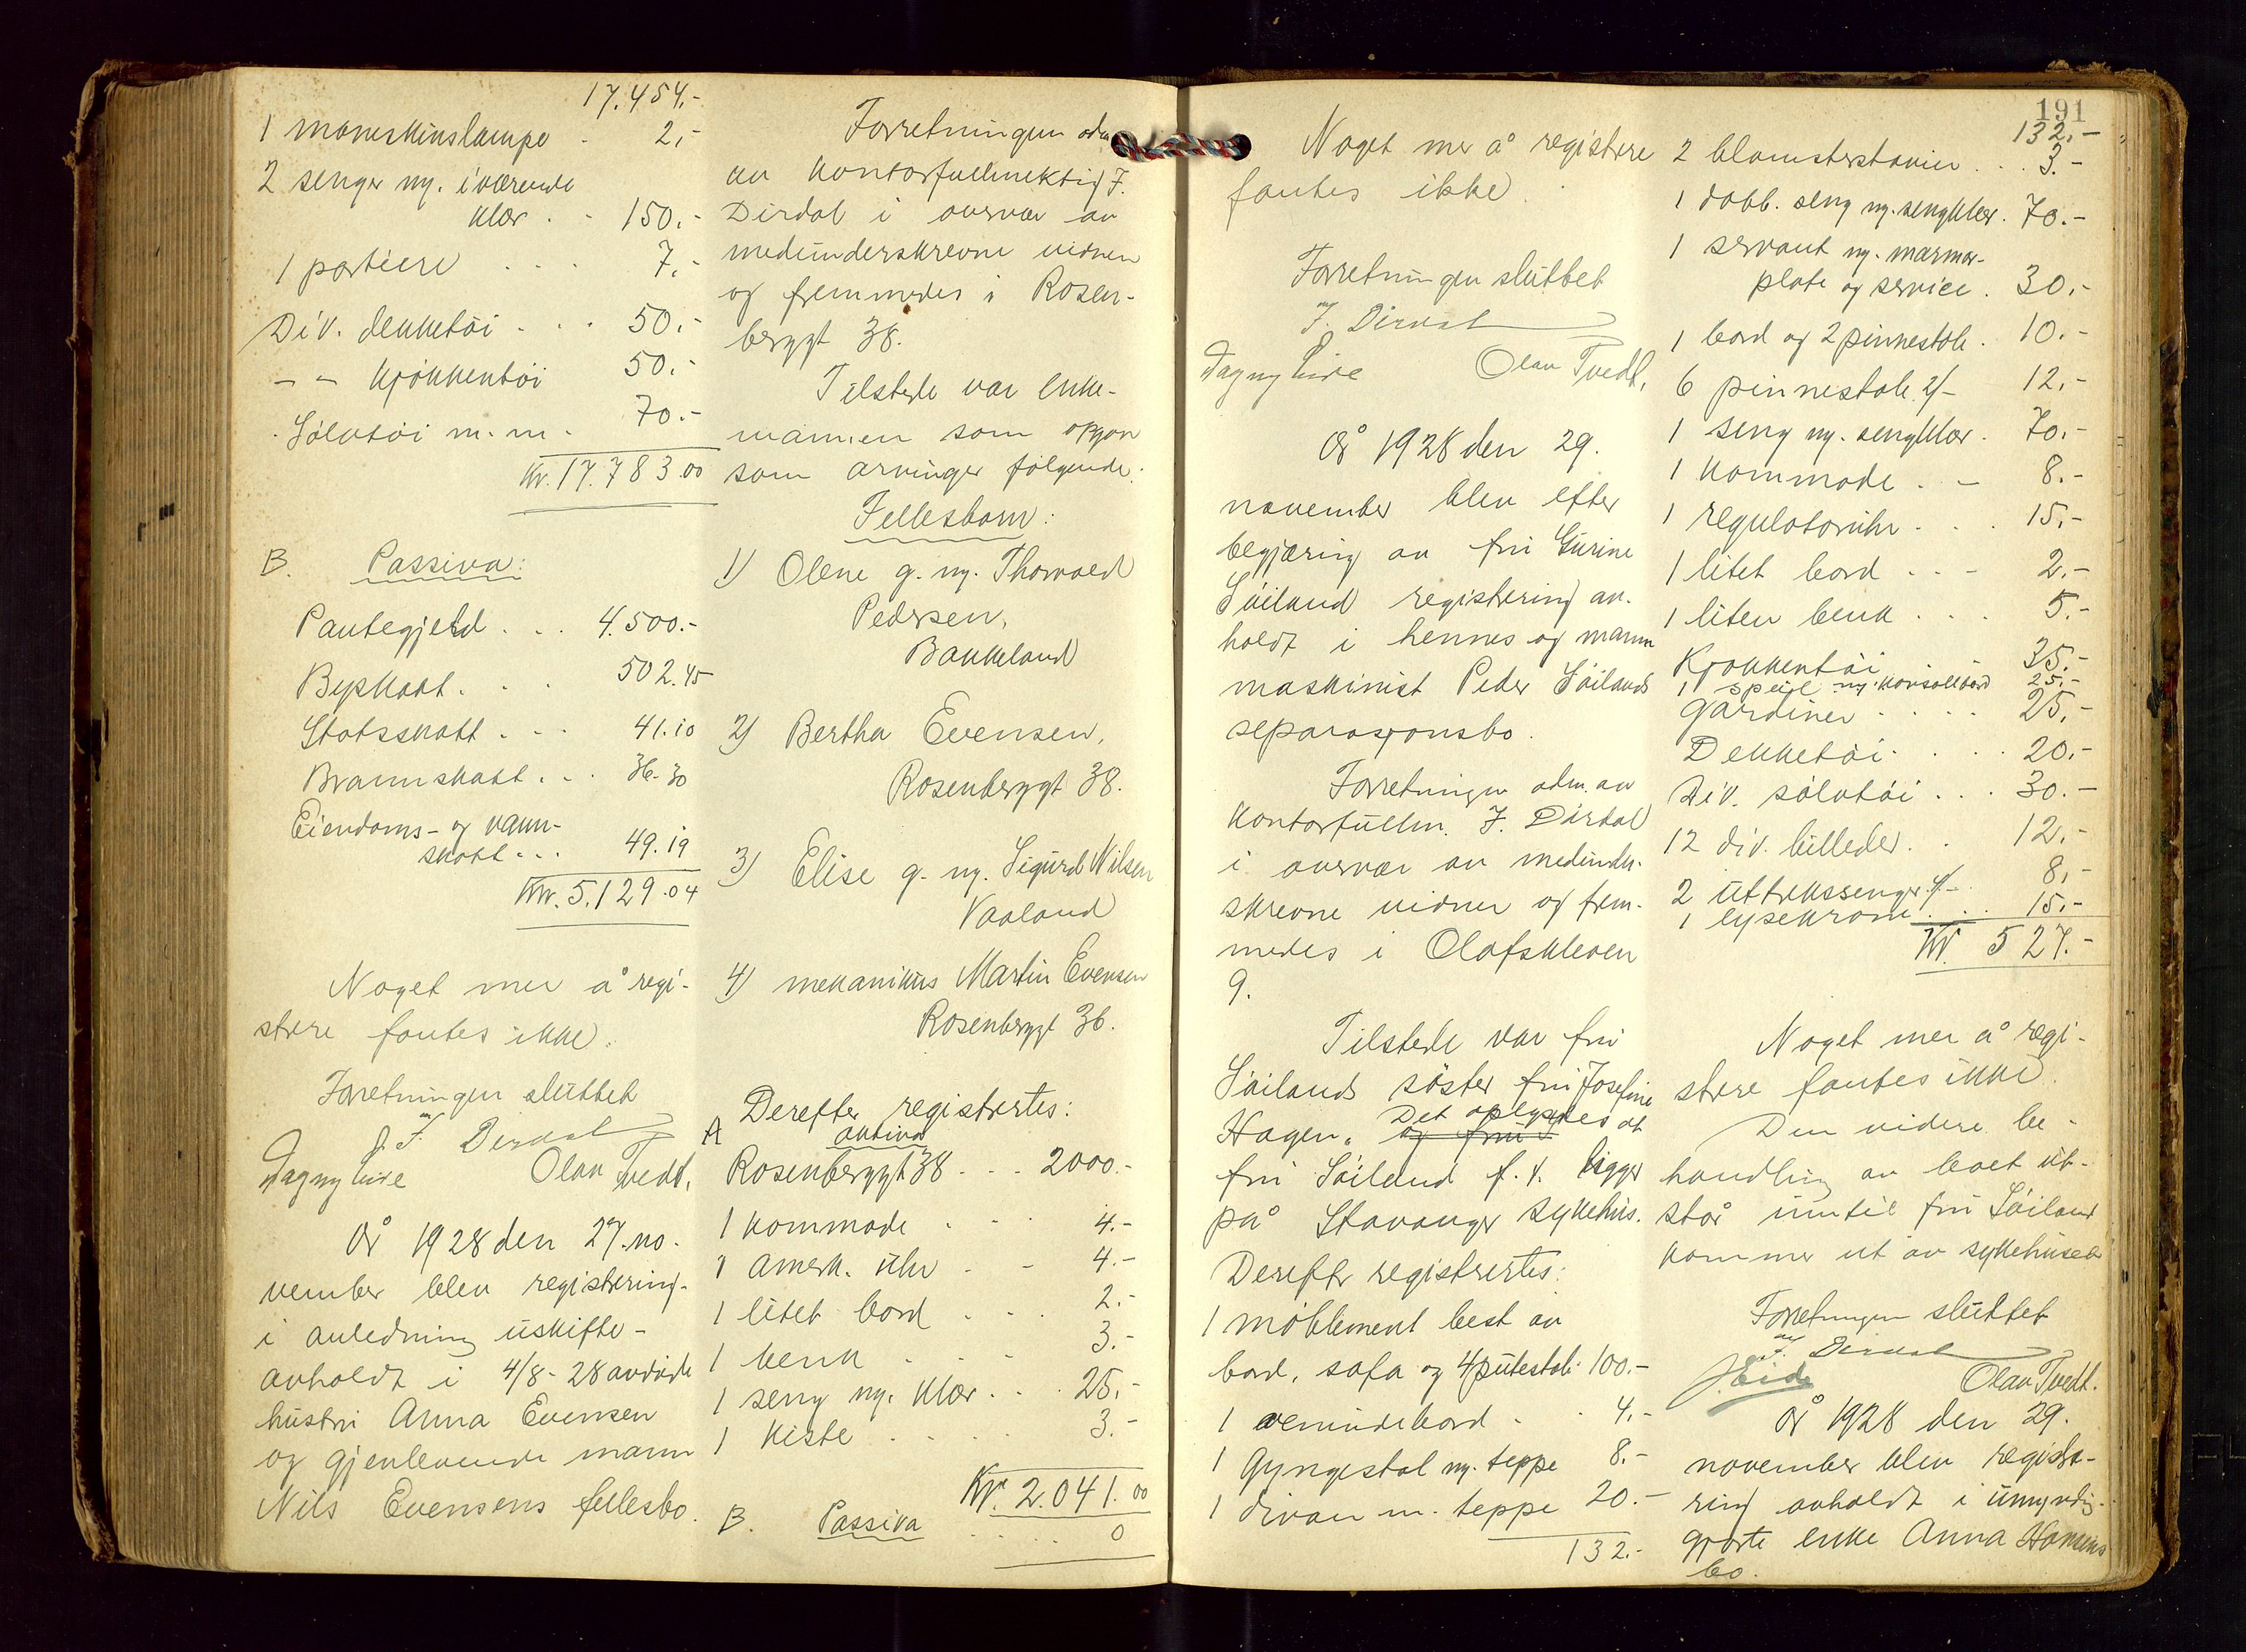 17.454.-
1 maneskinslampe - 2,-
2 senger m. iværende
klær . - 150.-
1 portiere . . . 7,-
Div. dekketøi . . . 50.-
- " - kjøkkentøi 50.-
Sølvtøi m.m. 70.-
Kr. 17.783.00
B. Passiva:
Pantegjeld . . . 4.500.-
Byskatt . . . 502.45
Statsskatt . . . 41.10
Brannskatt . . . 36.30
Eiendoms- og vann-
skatt . . . 49.19
Kr. 5.129.04
Noget mer å regi-
strere fantes ikke.
Forretningen sluttet
F. Dirdal
Dagny Eide Olav Tvedt.
År 1928 den 27. no-
vember blev registrering
i anledning uskifte-
avholdt i 4/8-28 avdøde
hustru Anna Evensen
og gjenlevende mann
Nils Evensens fellesbo.
Forretningen adm.
av kontorfullmektig F.
Dirdal i overvær av
medunderskrevne vidner
og fremmedes i Rosen-
berggt 38.
Tilstede var enke-
mannen som opgav
som arvinger følgende:
Fellesbarn:
1) Olene g. m. Thorvald
Pedersen,
Bakkeland
2) Bertha Evensen,
Rosenberggt 38.
3) Elise g. m. Sigurd Nilsen
Vaaland
4) mekanikus Martin Evensen
Rosenberggt 36.
Derefter registrertes:
A aktiva
Rosenberggt 38 . . . 2000.-
1 kommode . . . 4.-
1 amerk. uhr . - 4.-
1 litet bord . . . 2.-
1 benk . . . 3.-
1 seng m. klær . . . 25,-
1 kiste . . . . 3.-
Kr. 2.041.00
B. Passiva . . . 0
191
Noget mer å registrere
fantes ikke.
Forretningen sluttet
F. Dirdal
Dagny Eide Olav Tvedt.
År 1928 den 29.
november blev efter
begjæring av fru Gurine
Söiland registrering av-
holdt i hennes og mann
maskinist Peder Söilands
separasjonsbo.
Forretningen adm. av
kontorfullm. F. Dirdal
i overvær av medunder-
skrevne vidner og frem-
medes i Olafskleven
9.
Tilstede var fru
Söilands søster fru Josefine
Hagen. og fru Det oplystes at
fru Söiland f. t. ligger
på Stavanger sykehus.
Derefter registrertes:
1 møblement best av
bord, sofa og 4 putestole 100.-
1 verandebord . . 4.-
1 Gyngestol m. teppe 8.-
1 divan m. teppe 20.-
132.-
132.-
2 blomsterstativer . . . 3.-
1 dobb. seng m. sengklær . 70.-
1 servant m. marmor-
plate og service . 30.-
1 bord og 2 pinnestole . 10.-
6 pinnestole 2/- 12.-
1 seng m. sengklær . 70.-
1 kommode . . - 8.-
1 regulatoruhr . . . 15.-
1 litet bord . . - 2.-
1 liten benk . . . 5.-
Kjøkkentøi 35.-
1 speil m. konsollbord 25.-
Gardiner . . . . . 25.-
Dekketøi . . . . 20.-
Div. sølvtøi . . . 30.-
12 div. billeder . . 12.-
2 uttrekssenger 4/- 8.-
1 lysekrone . . . 15.-
Kr. 527.-
Noget mer å regi-
strere fantes ikke.
Den videre be-
handling av boet ut-
står inntil fru Söiland
kommer ut av sykehuset
Forretningen sluttet
F. Dirdal
J. Eide Olav Tvedt.
År 1928 den 29.
november blev registre-
ring avholdt i umyndig-
gjorte enke Anna Hansens
bo.